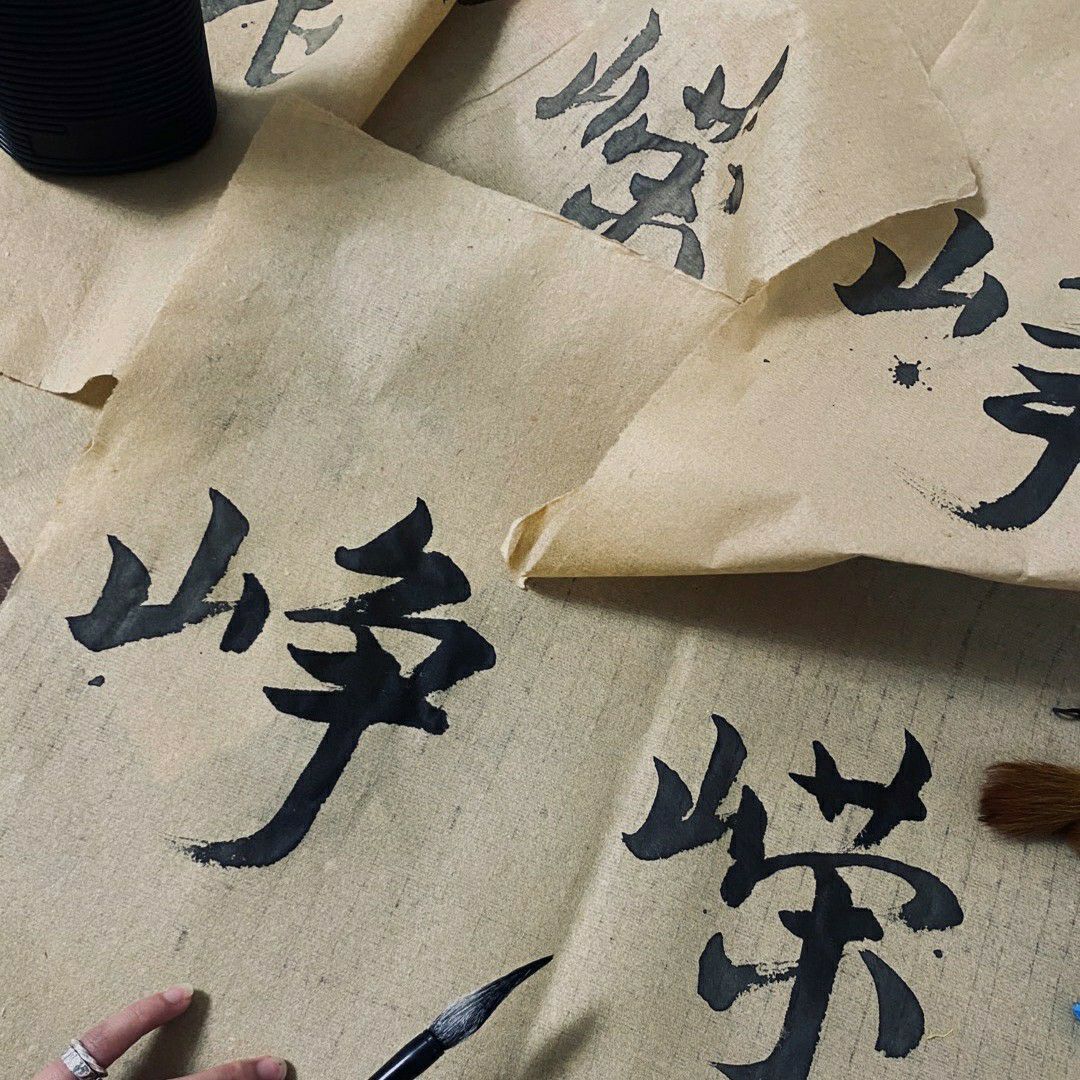 嵘
峥
峥嵘